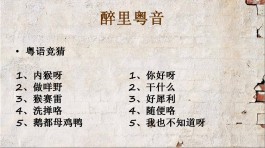 醉里粤音
• 粤语竞猜
1、内猴呀
2、做咩野
3、猴赛雷
4、洗掸咯
5、鹅都母鸡鸭
1、你好呀
2、干什么
3、好犀利
4、随便咯
5、我也不知道呀